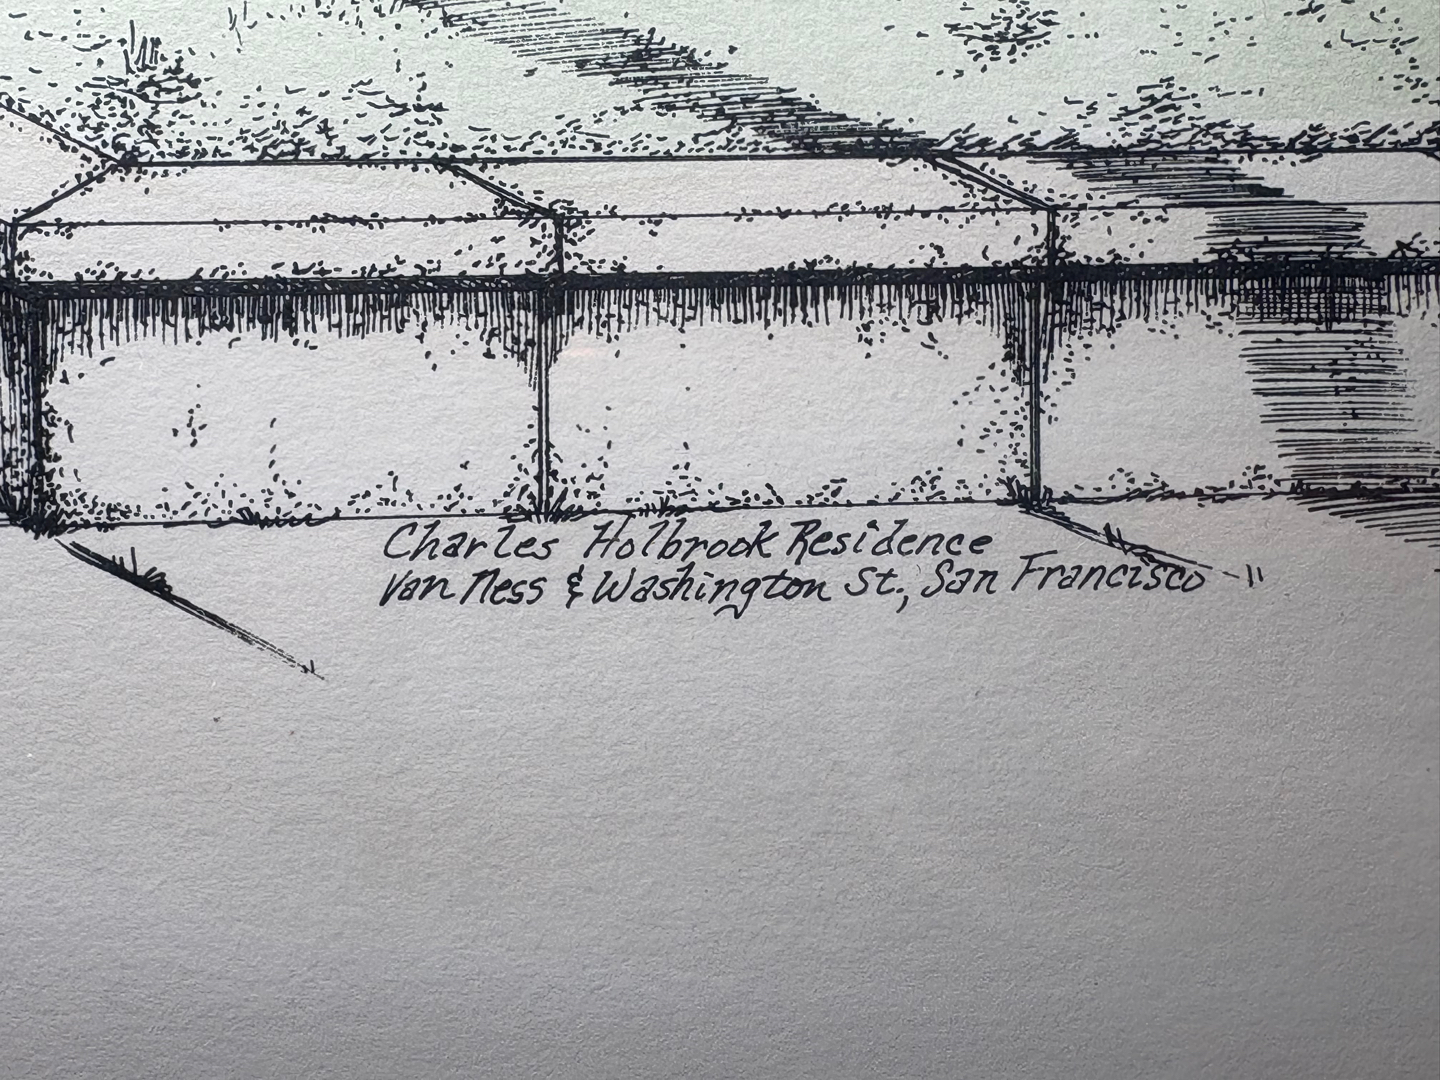 Charles Holbrook Residence
Van Ness & Washington St., San Francisco